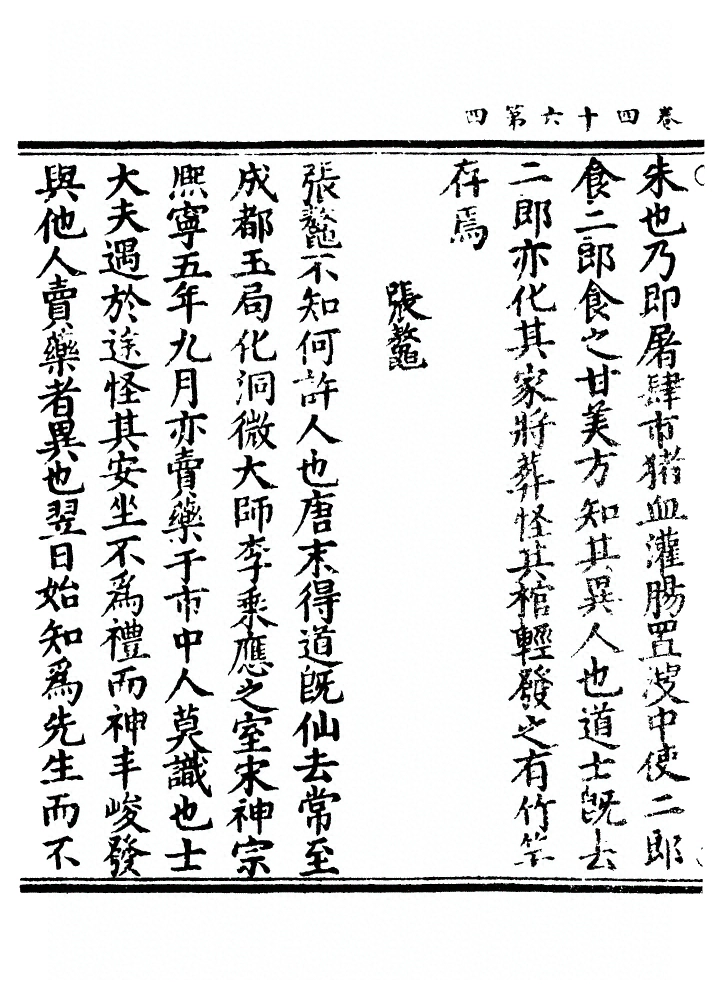 卷四十六第四
朱也乃即屠肆市猪血灌腸置湌中使二郎
食二郎食之甘美方知其異人也道士既去
二郎亦化其家將葬怪其棺輕發之有竹竿
存焉
張鼇
張鼇不知何許人也唐末得道既仙去常至
成都玉局化洞微大師李乘應之室宋神宗
熈寧五年九月亦賣藥于市中人莫識也士
大夫遇於途怪其安坐不爲禮而神丰峻發
與他人賣藥者異也翌日始知爲先生而不